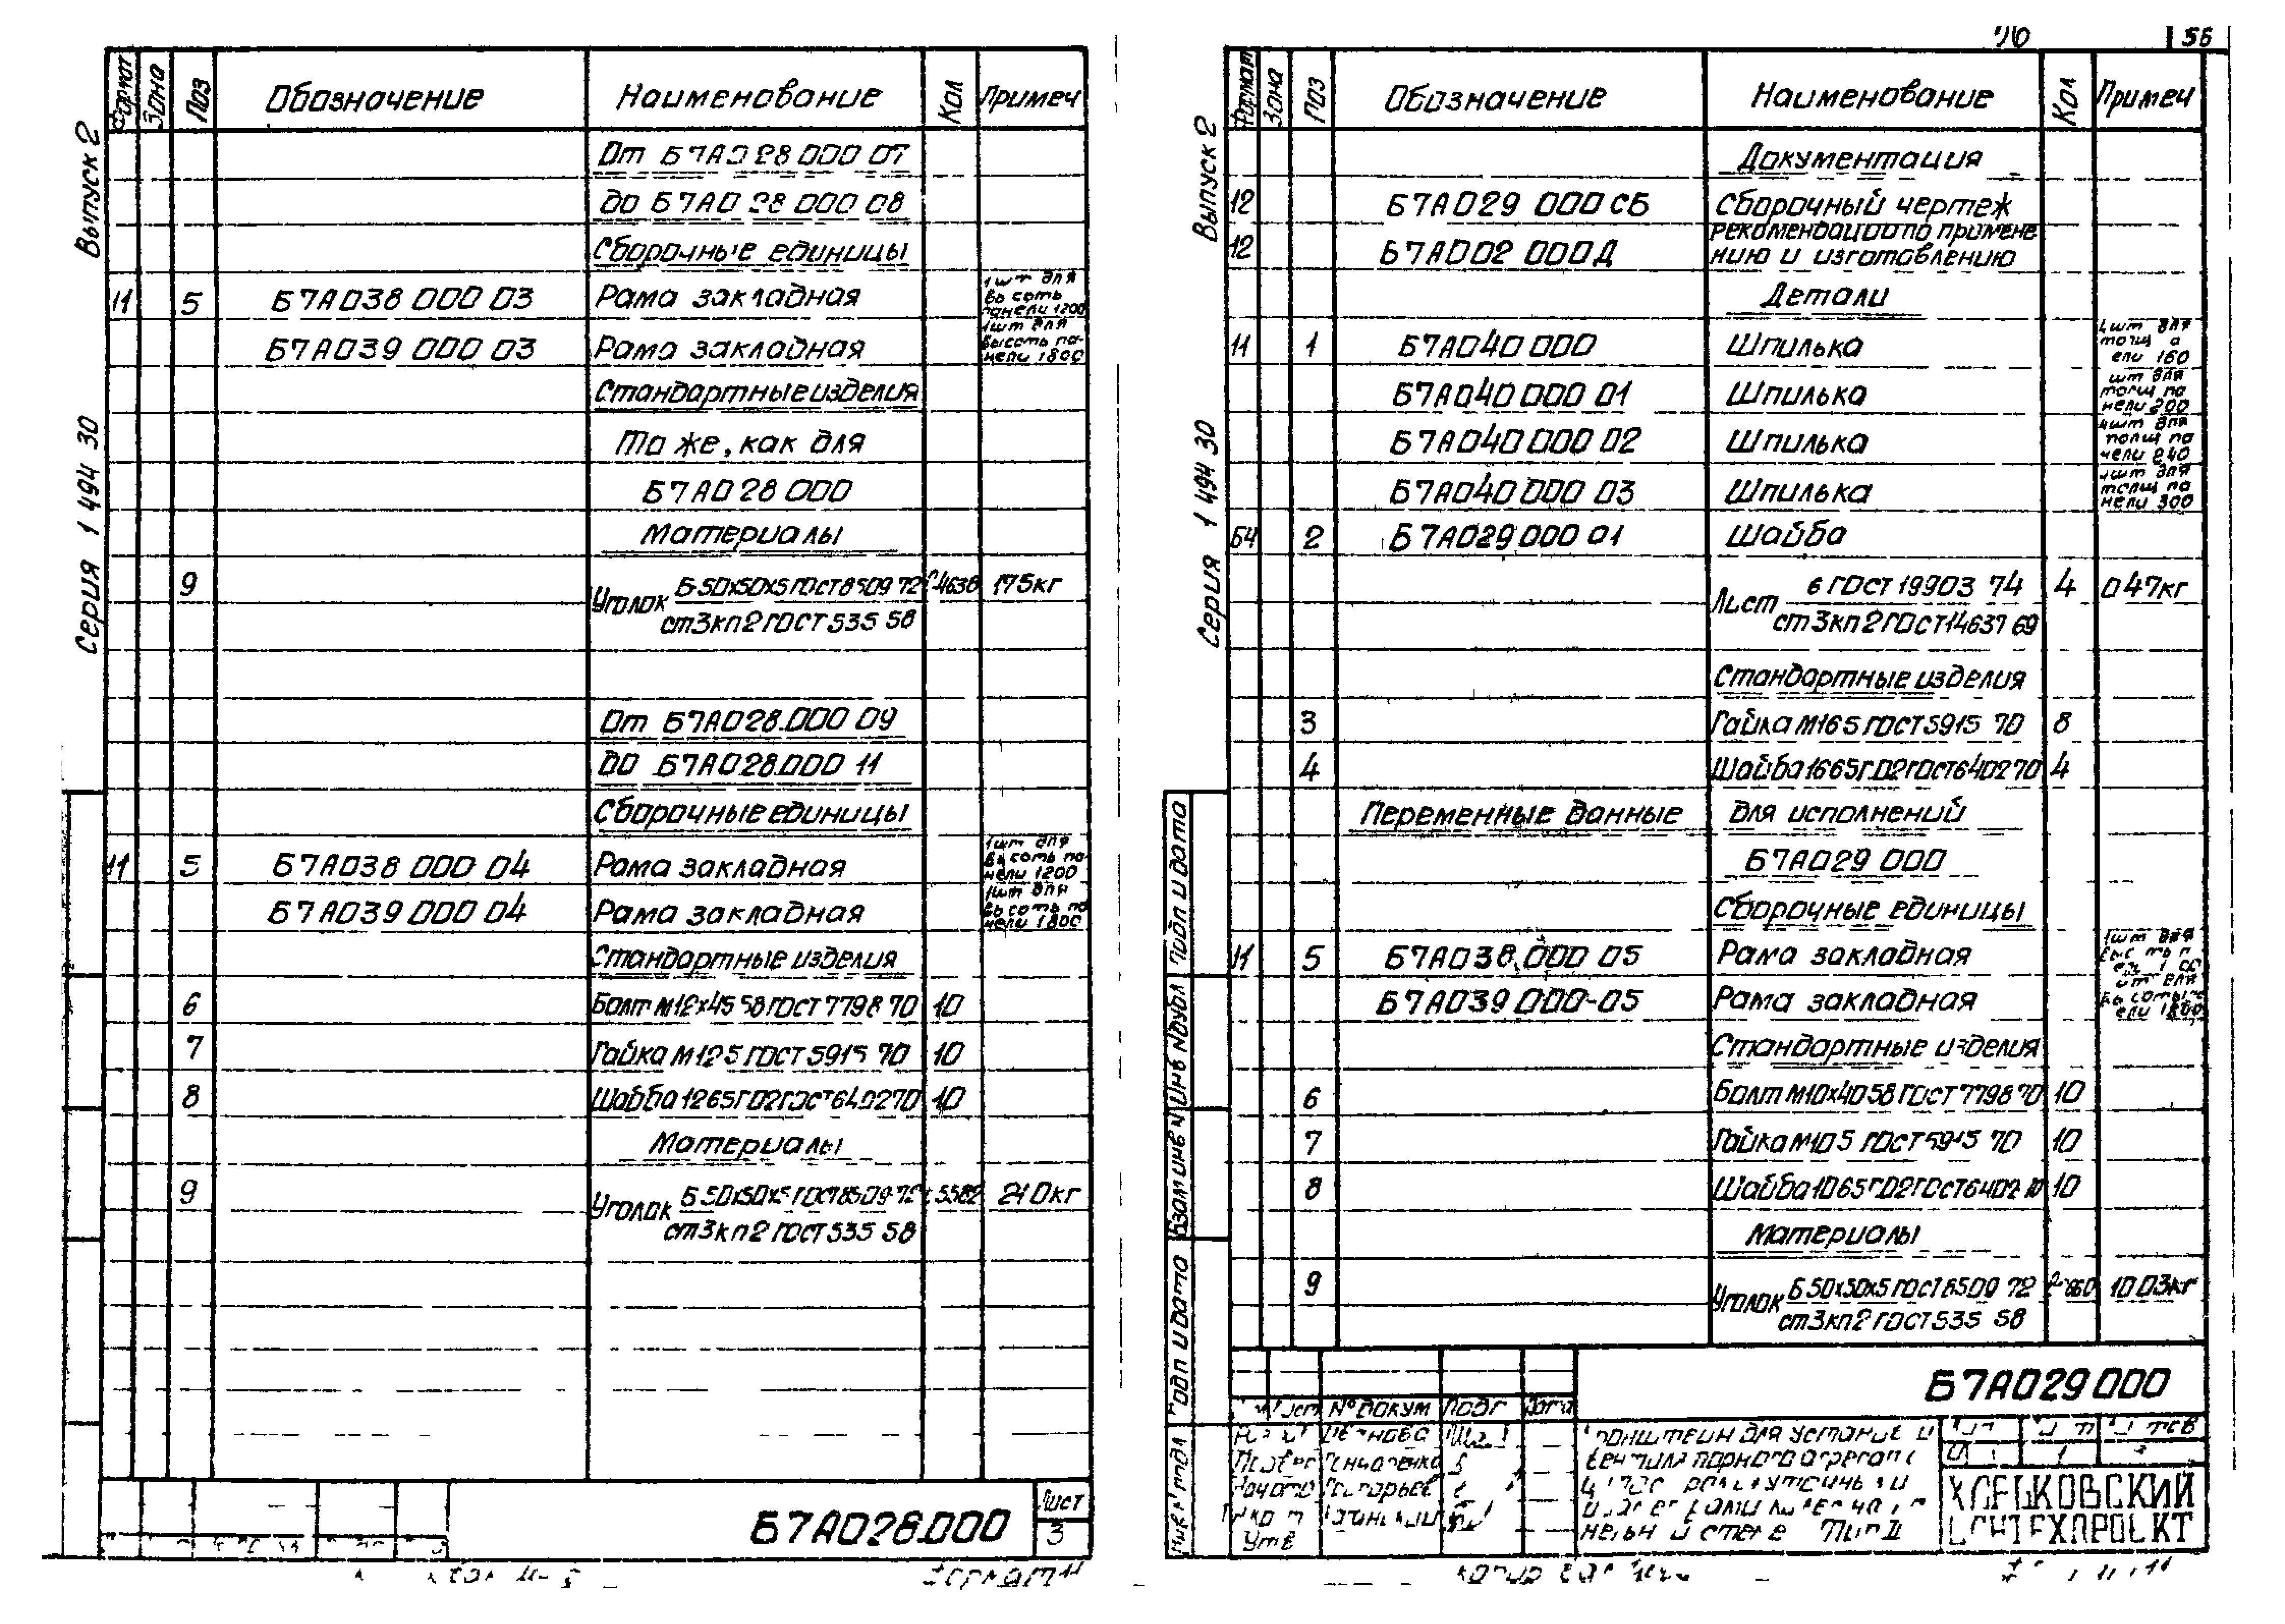 Формат Зона Поз Обозначение Наименование Кол Примеч
Выпуск 2
Серия 1 494 30
От Б7А028 000 07
до Б7А028 000 08
Сборочные единицы
11 5 Б7А038 000 03 Рама закладная 1шт для высоты панели 1200
Б7А039 000 03 Рама закладная 1шт для высоты панели 1800
Стандартные изделия
То же, как для
Б7А028 000
Материалы
9 Уголок Б50х50х5 ГОСТ 8509 72 4638 175кг
ст3кп2 ГОСТ 535 58
От Б7А028.000 09
до Б7А028.000 11
Сборочные единицы
11 5 Б7А038 000 04 Рама закладная 1шт для высоты панели 1200
Б7А039 000 04 Рама закладная 1шт для высоты панели 1800
Стандартные изделия
6 Болт М12х45 58 ГОСТ 7798 70 10
7 Гайка М12 5 ГОСТ 5915 70 10
8 Шайба 12 65Г 02 ГОСТ 6402 70 10
Материалы
9 Уголок Б50х50х5 ГОСТ 8509-72 5582 210кг
ст3кп2 ГОСТ 535 58
Б7А028.000
Лист
3
56
Формат Зона Поз Обозначение Наименование Кол Примеч
Выпуск 2
Серия 1 494 30
Документация
12 Б7А029 000 СБ Сборочный чертеж
12 Б7А002 000Д Рекомендации по применению и изготовлению
Детали
11 1 Б7А040 000 Шпилька 4шт для 160
Б7А040 000 01 Шпилька шт для толщ панели 200
Б7А040 000 02 Шпилька 4шт для толщ панели 240
Б7А040 000 03 Шпилька 4шт для толщ панели 300
БЧ 2 Б7А029 000 01 Шайба
Лист 6 ГОСТ 19903 74 4 0 47кг
ст3кп2 ГОСТ 14637 69
Стандартные изделия
3 Гайка М16 5 ГОСТ 5915 70 8
4 Шайба 16 65Г 02 ГОСТ 6402 70 4
Переменные данные для исполнений
Б7А029 000
Сборочные единицы
11 5 Б7А038.000 05 Рама закладная 1шт для
Б7А039 000-05 Рама закладная шт для высоты 1800
Стандартные изделия
6 Болт М10х40 58 ГОСТ 7798 70 10
7 Гайка М10 5 ГОСТ 5915 70 10
8 Шайба 10 65Г 02 ГОСТ 6402 70 10
Материалы
9 Уголок Б50х50х5 ГОСТ 8509 72 10 03кг
ст3кп2 ГОСТ 535 58
Подп и дата
Инв № дубл
Взам инв №
Подп и дата
Б7А029 000
Лист № докум Подп Дата
Кронштейн для установки
вентиляторного агрегата
Тип II
Утв
ХАРЬКОВСКИЙ